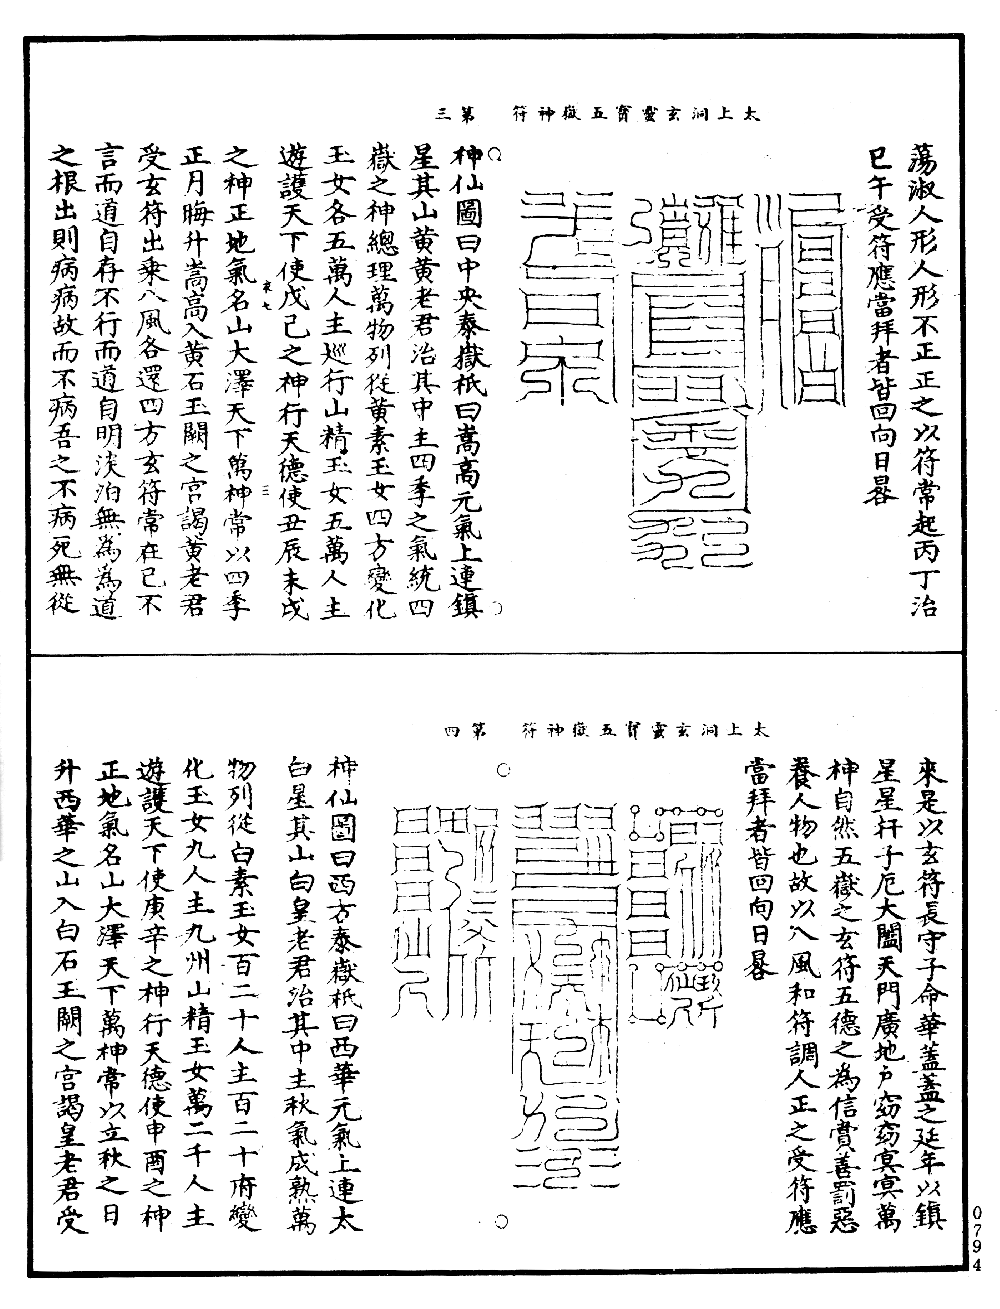 蕩淑人形人形不正正之以符常起丙丁治
巳午受符應當拜者皆回向日晷
太上洞玄靈寶五嶽神符　第三
神仙圖曰中央泰嶽祇曰嵩高元氣上連鎮
星其山黃黃老君治其中主四季之氣統四
嶽之神總理萬物列從黃素玉女四方變化
玉女各五萬人主巡行山精玉女五萬人主
遊護天下使戊己之神行天德使丑辰未戌
衣七
三
之神正地氣名山大澤天下萬神常以四季
正月晦升嵩高入黃石玉闕之宮謁黃老君
受玄符出乘八風各還四方玄符常在已不
言而道自存不行而道自明淡泊無為為道
之根出則病病故而不病吾之不病死無從
來是以玄符長守子命華蓋蓋之延年以鎮
星星扞子厄大闔天門廣地戶窈窈冥冥萬
神自然五嶽之玄符五德之為信賞善罰惡
養人物也故以八風和符調人正之受符應
當拜者皆回向日晷
太上洞玄靈寶五嶽神符　第四
神仙圖曰西方泰嶽祇曰西華元氣上連太
白星其山白皇老君治其中主秋氣成熟萬
物列從白素玉女百二十人主百二十府變
化玉女九人主九州山精玉女萬二千人主
遊護天下使庚辛之神行天德使申酉之神
正地氣名山大澤天下萬神常以立秋之日
升西華之山入白石玉闕之宮謁皇老君受
0794